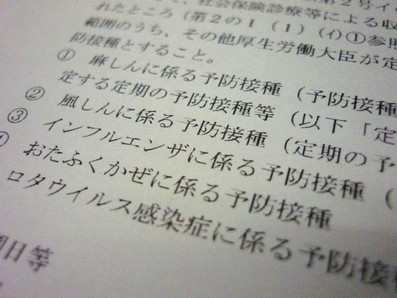 第2号イ
、社会保険診療等による収
れたところ（第2の1（1）(イ)①参照
範囲のうち、その他厚生労働大臣が定
防接種とすること。
① 麻しんに係る予防接種（予防接種
定する定期の予防接種等（以下「定
② 風しんに係る予防接種（定期の予
③ インフルエンザに係る予防接種（
おたふくかぜに係る予防接種
ロタウイルス感染症に係る予防接種
日等